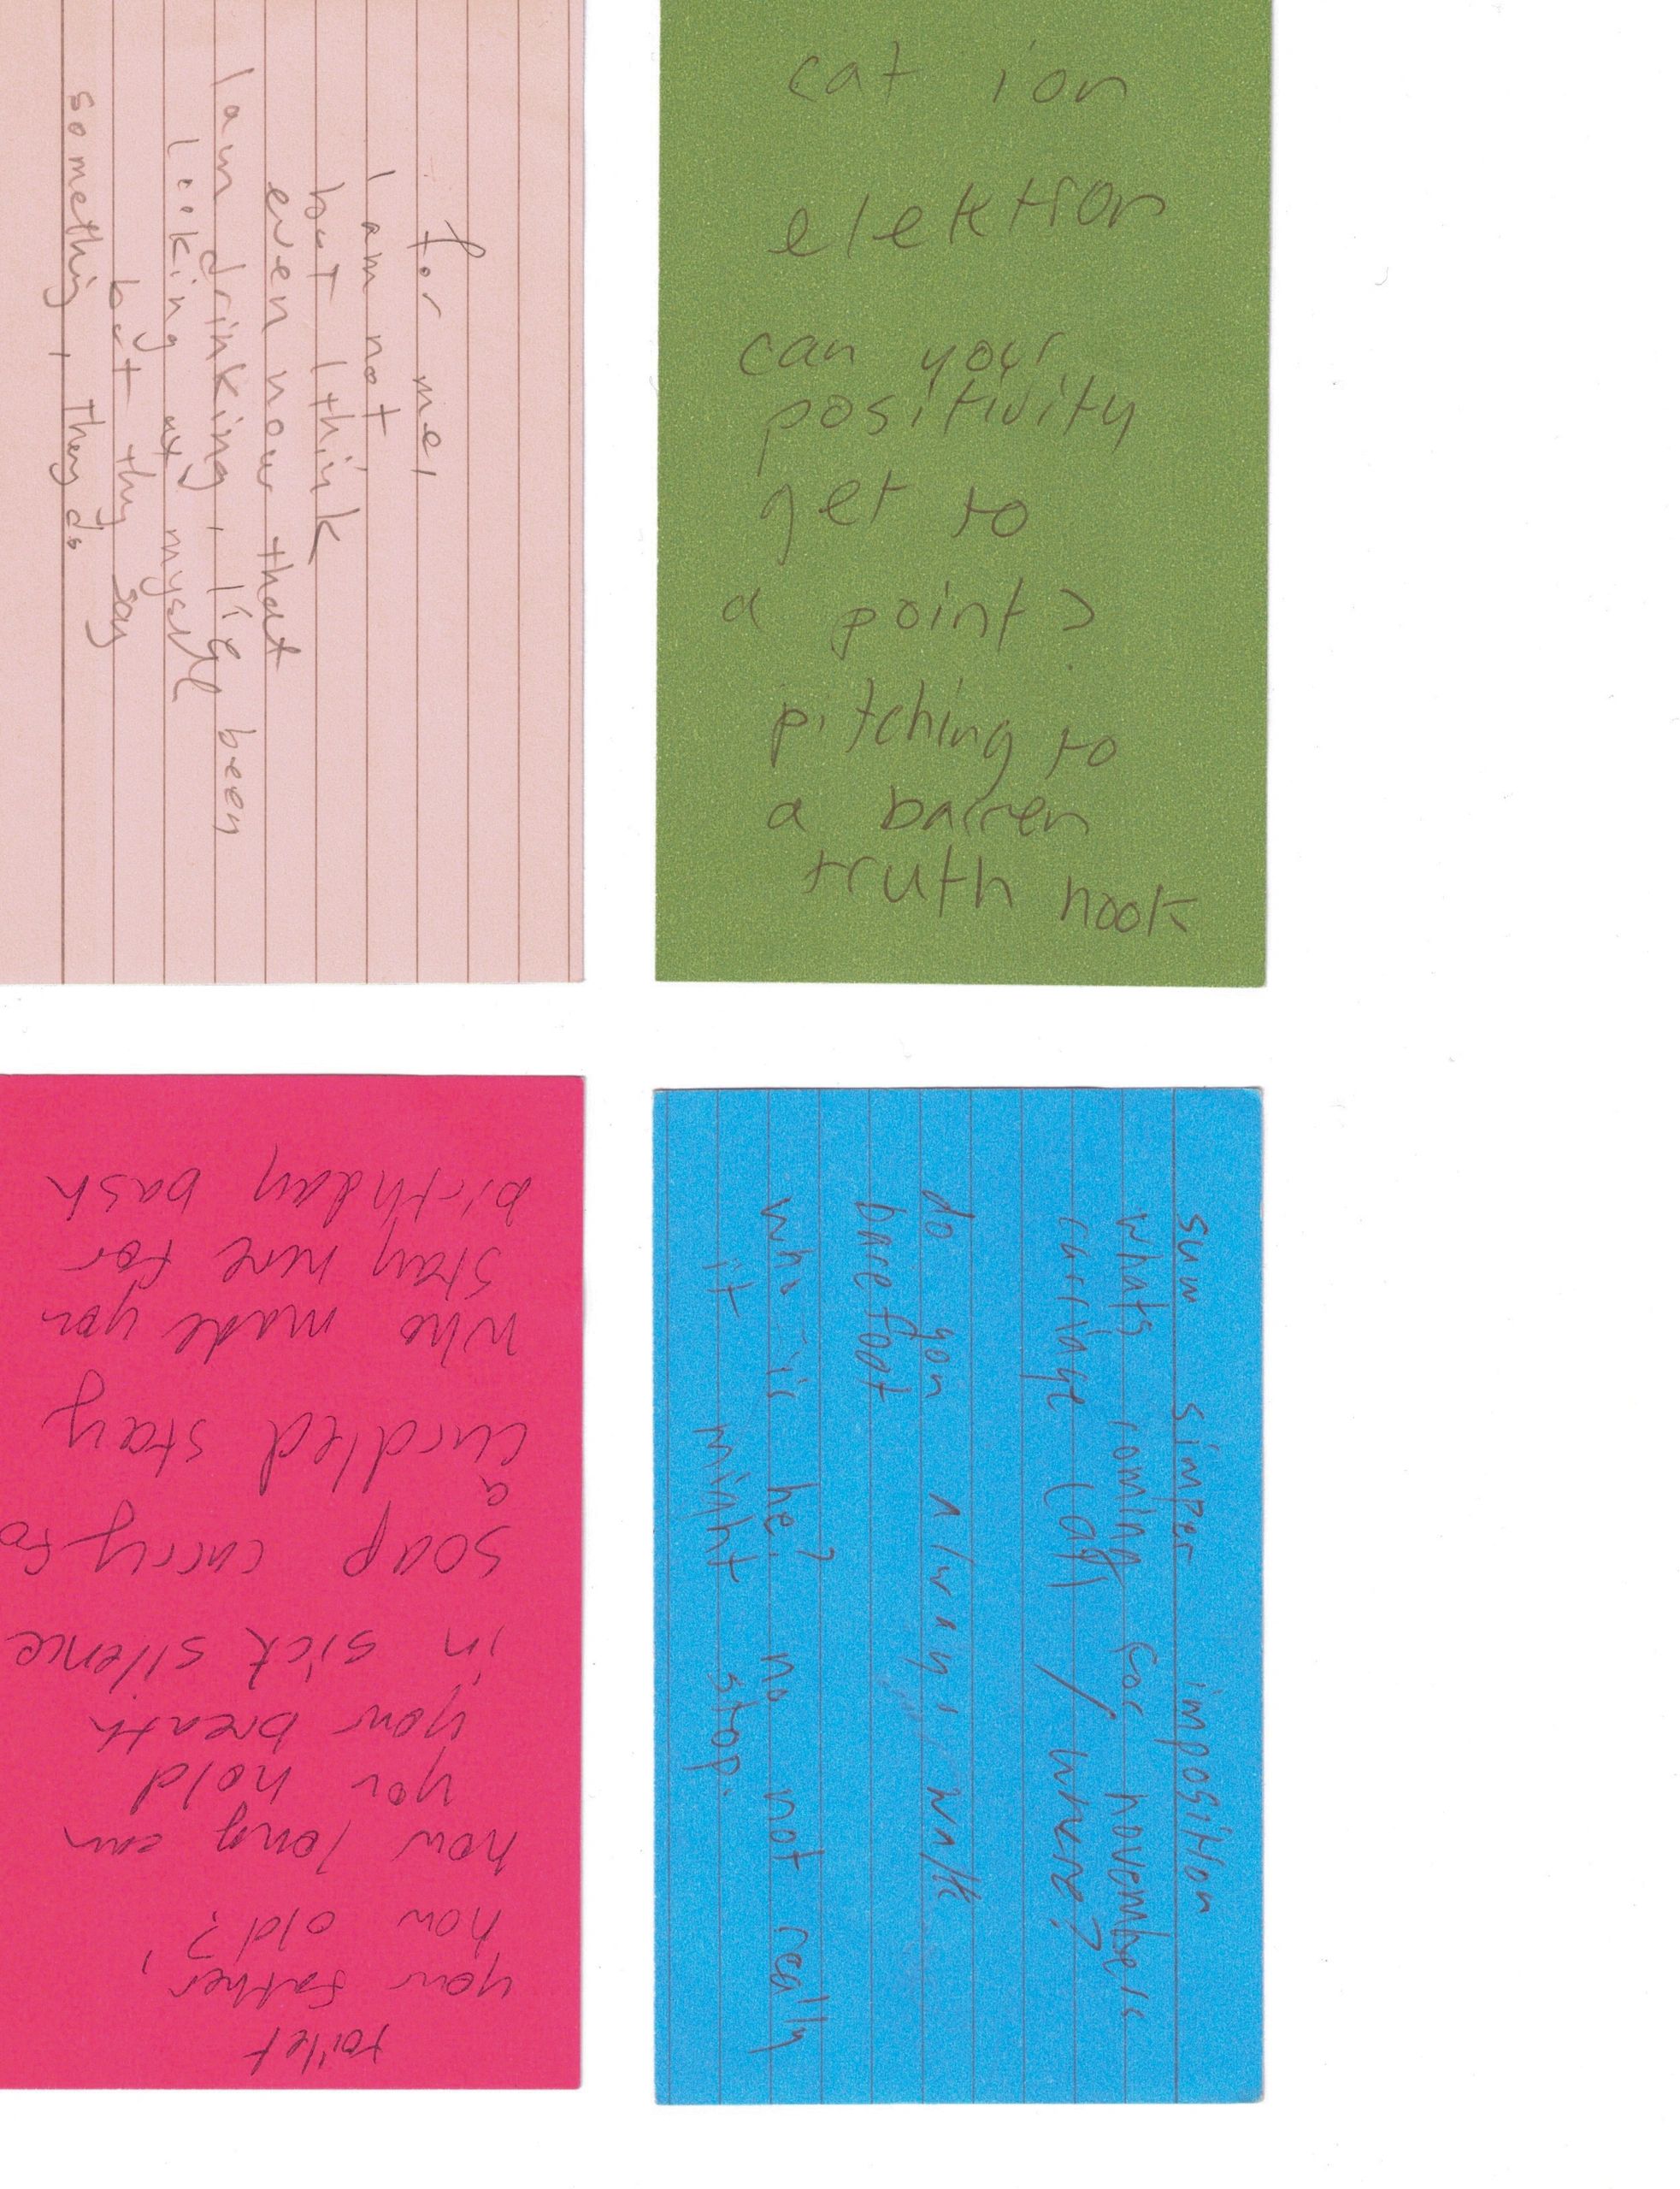 for me,
I am not
but I think
even now that
I am drinking, I've been
looking at myself
but they say
something, They do
cat ion
elektron
can your
positivity
get to
a point?
pitching to
a barren
truth nook
toilet
your father,
how old?
how long can
you hold
your breath
in sick silence
soap curry fo
a
curdled stay
who made you
stay here for
birthday bash
sum simper imposition
whats coming for novembers
carriage (at) / where?
do you always walk
barefoot
who is he? no not really
it might stop.